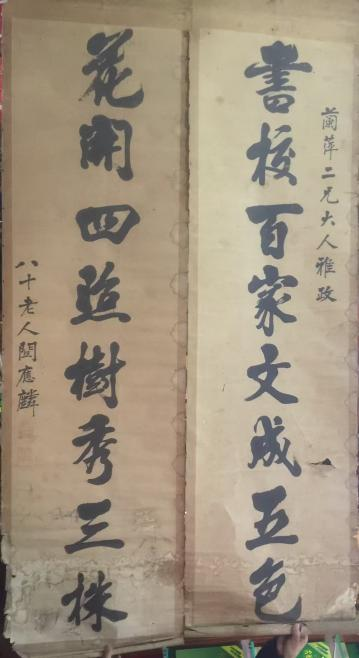 蘭萍二兄大人雅政
書校百家文成五色
花開四照樹秀三株
八十老人閻應麟